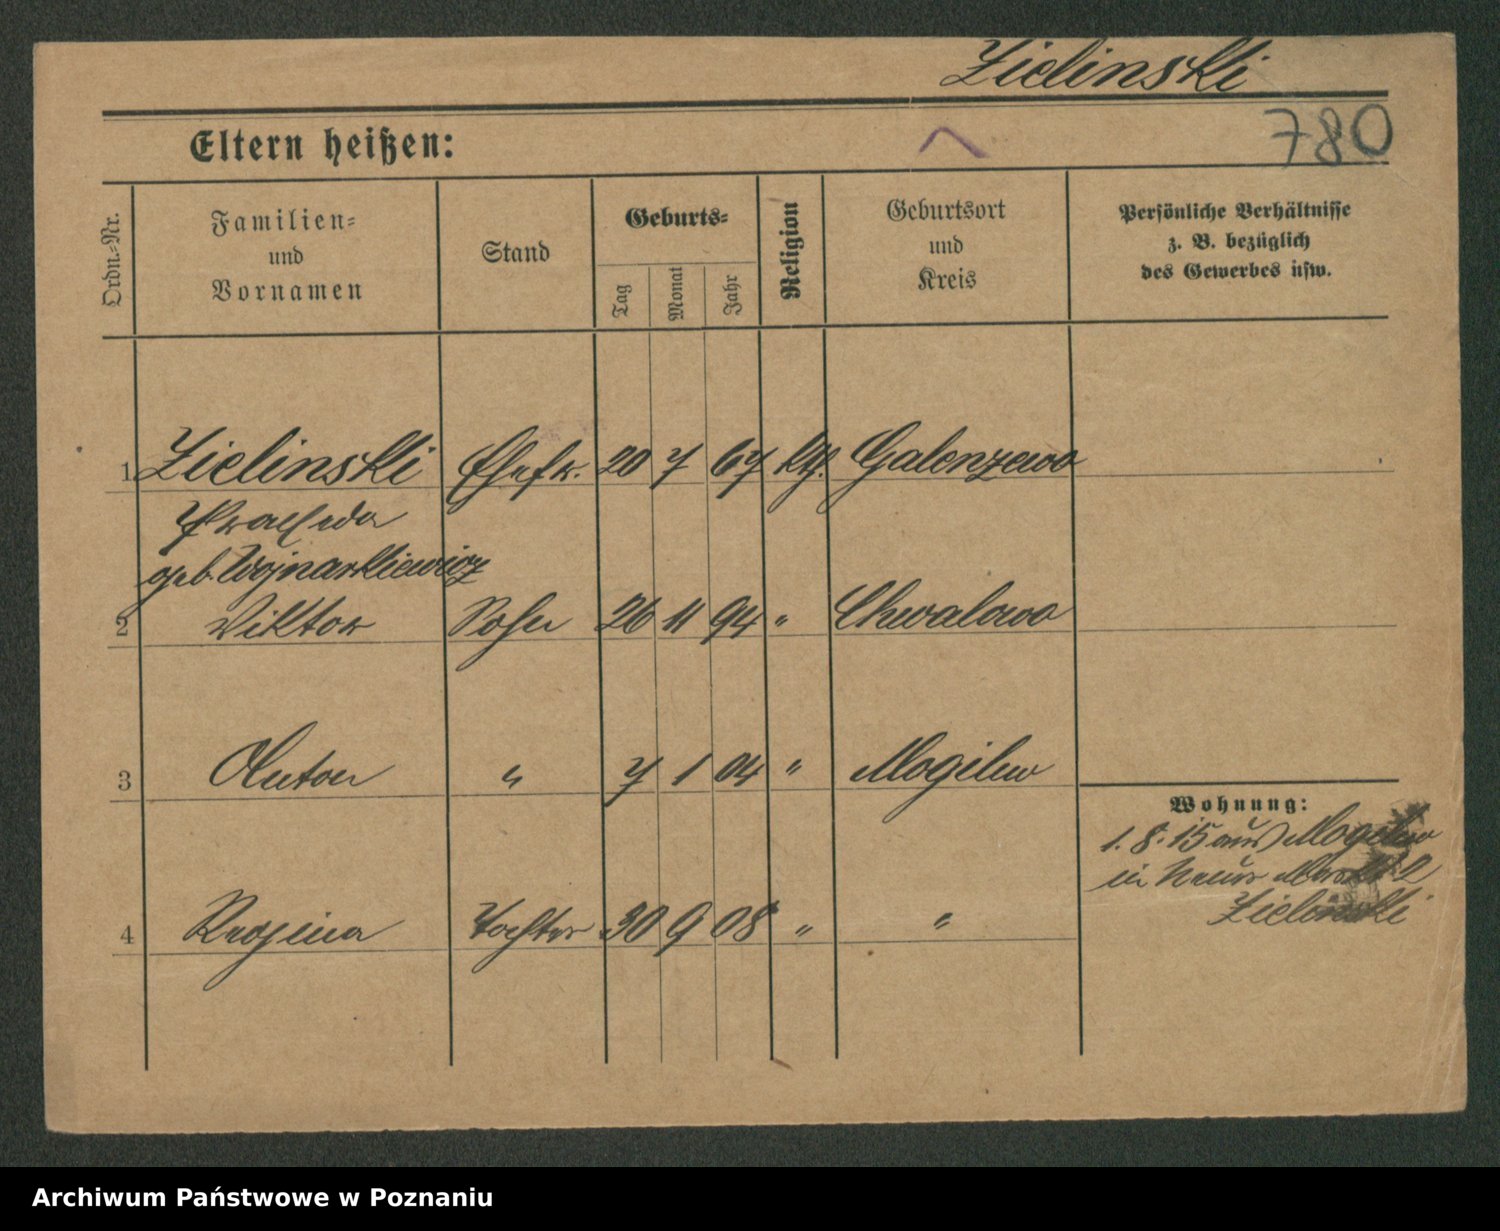 Zielinski
780
Eltern heißen:
Ordn.=Nr.
Familien=
und
Vornamen
Stand
Geburts=
Tag
Monat
Jahr
Religion
Geburtsort
und
Kreis
Persönliche Verhältnisse
z. B. bezüglich
des Gewerbes usw.
1 Zielinski Ehefr. 20 7 67 kth. Galenzewo
Praxeda
geb. Wojnarkiewicz
2 Viktor Sohn 26 11 94 " Chwalowo
3 Anton " 7 1 04 " Mogilew
Wohnung:
1. 8. 15 aus Mogilew
in Neuer Markt 2
Zielinski
4 Regina Tochter 30 9 08 " "
Archiwum Państwowe w Poznaniu